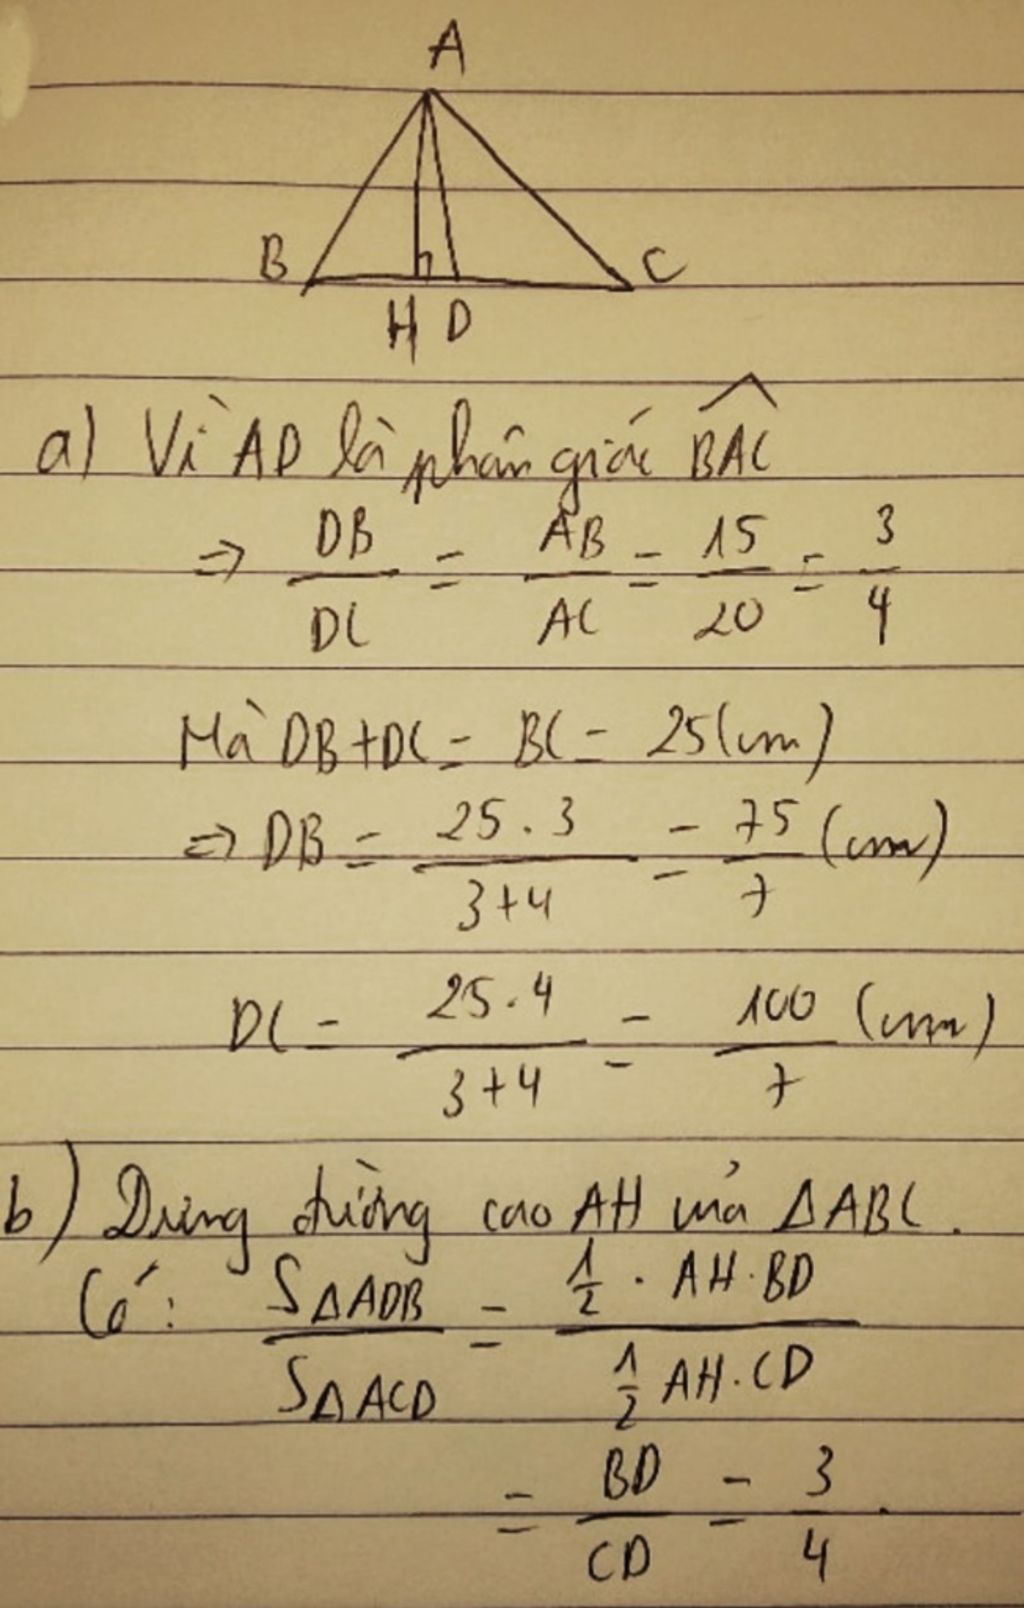 A
B
C
H D
a) Vì AD là phân giác \widehat{BAC}
=> DB/DC = AB/AC = 15/20 = 3/4
Mà DB+DC = BC = 25(cm)
=> DB = 25.3/3+4 = 75/7 (cm)
DC = 25.4/3+4 = 100/7 (cm)
b) Dựng đường cao AH của ΔABC.
Có: SΔADB/SΔACD = 1/2 . AH.BD / 1/2 AH.CD
= BD/CD = 3/4.